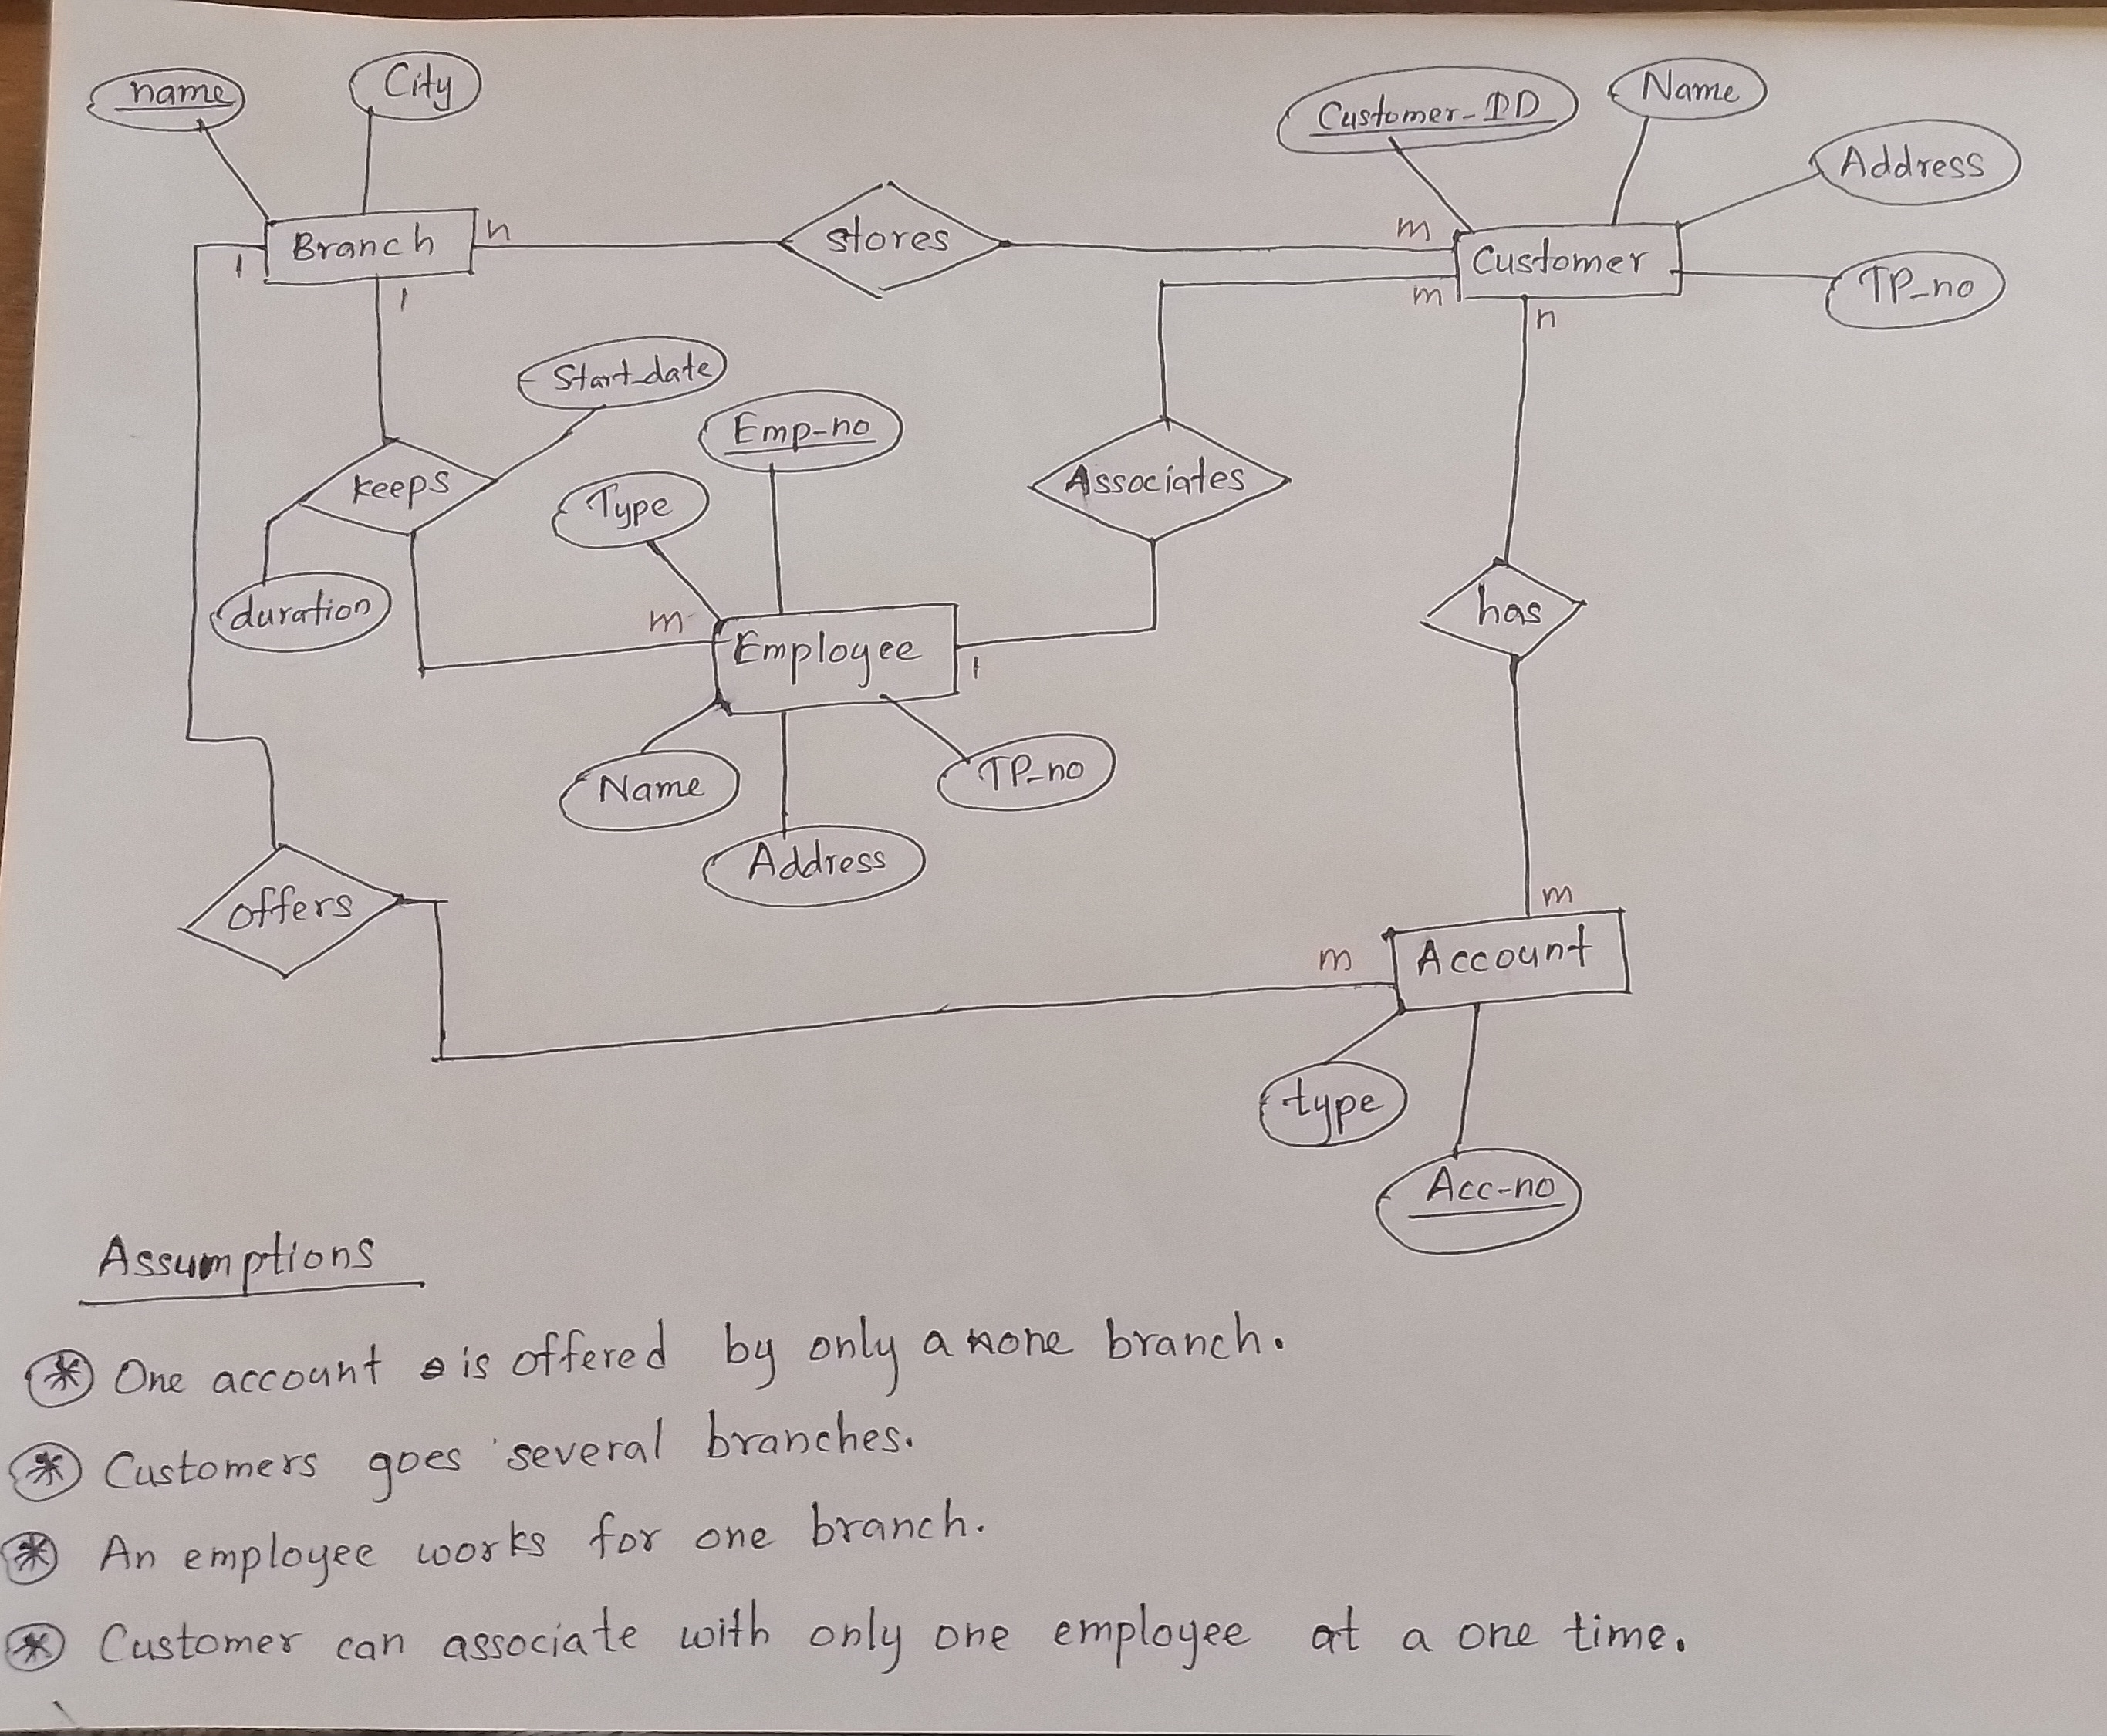 name
City
Customer-ID
Name
Address
TP-no
Branch
n
stores
m
Customer
1
1
m
n
Start-date
Emp-no
Type
keeps
Associates
duration
has
m
Employee
1
Name
TP-no
Address
offers
m
m
Account
type
Acc-no
Assumptions
One account is offered by only a one branch.
Customers goes several branches.
An employee works for one branch.
Customer can associate with only one employee at a one time.